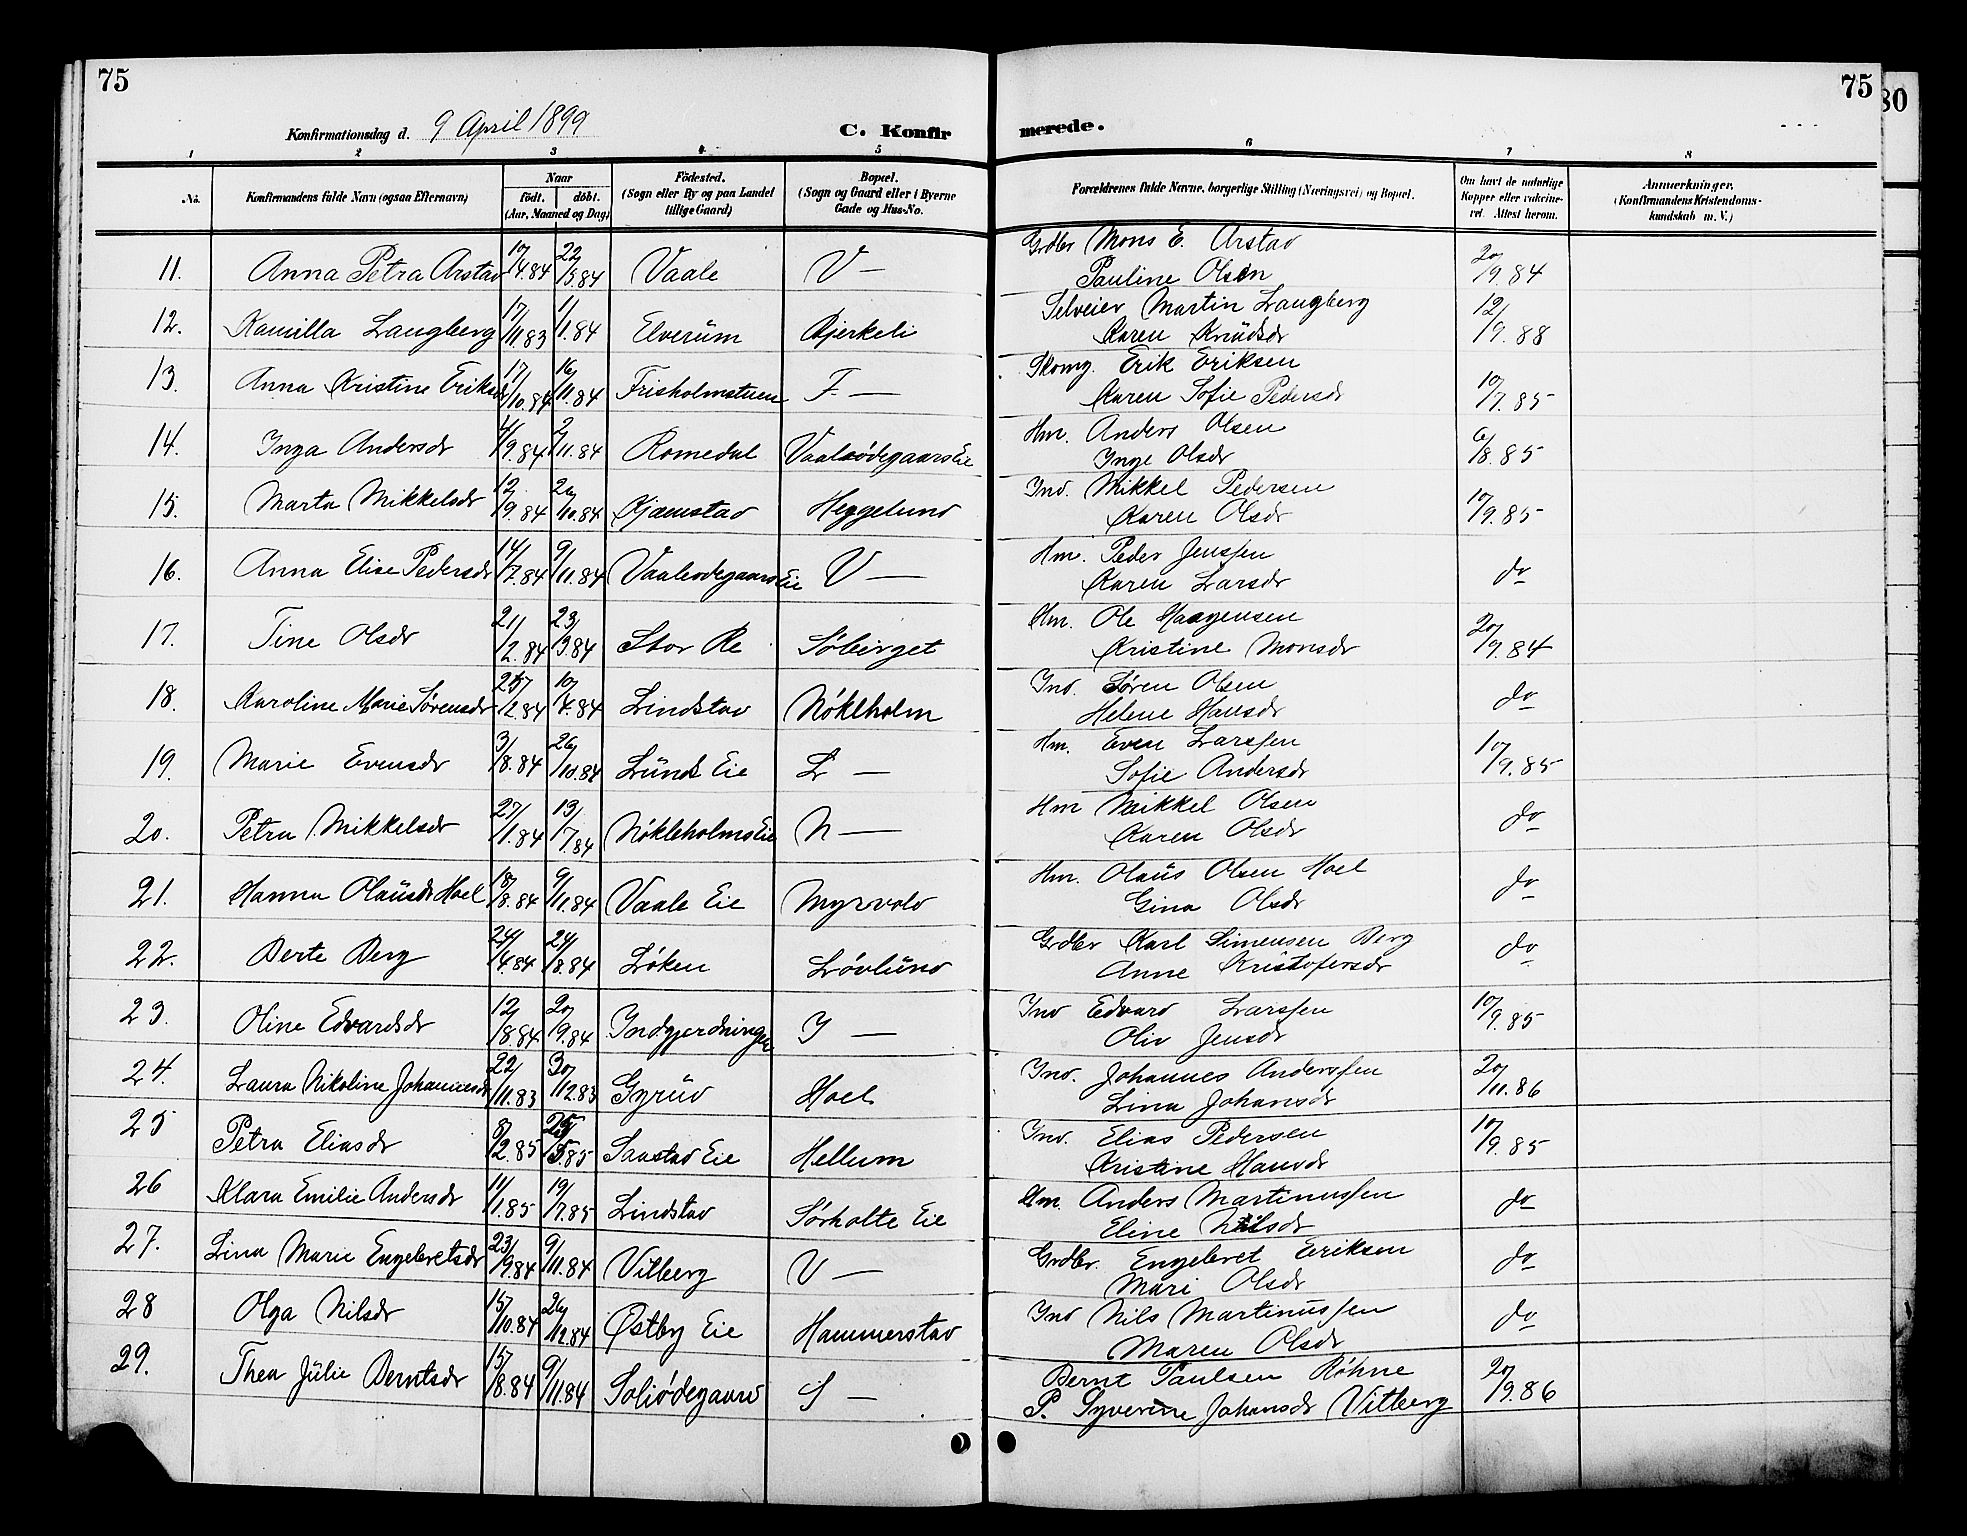 75
75
80
Konfirmationsdag d. 9 April 1899
C. Konfirmerede.
1 2 3 4 5 6 7 8
No.
Konfirmandens fulde Navn (ogsaa Efternavn)
Naar
født. døbt.
(Aar, Maaned og Dag)
Födested.
(Sogn eller By og paa Landet
tillige Gaard)
Bopæl.
(Sogn og Gaard eller i Byerne
Gade og Hus-No.
Forældrenes fulde Navne, borgerlige Stilling (Næringsvei) og Bopæl.
Om havt de naturlige
Kopper eller vakcine-
ret. Attest herom.
Anmerkninger.
(Konfirmandens Kristendoms-
kundskab m. V.)
11. Anna Petra Arstad 10/4.84 22/5.84 Vaale V — Grdbr Mons E. Arstad
Pauline Olsen 20/9.84
12. Kamilla Langberg 17/11.83 1/1.84 Elverum Bjerkeli Selveier Martin Langberg
Karen Knudsdr 12/9.88
13. Anna Kristine Eriksdr 17/10.84 16/11.84 Frisholmstuen F. — Skomg. Erik Eriksen
Karen Sofie Pedersdr 10/7.85
14. Inga Andersdr 4/9.84 2/11.84 Romedal Vaalsødegaards Eie Hm. Anders Olsen
Inge Olsdr 6/8.85
15. Marta Mikkelsdr 12/9.84 26/10.84 Kjæmstad Heggelund Ind. Mikkel Pedersen
Karen Olsdr 10/9.85
16. Anna Elise Pedersdr 14/7.84 9/11.84 Vaalsødegaards Eie V — Hm. Peder Jenssen
Karen Larsdr do
17. Tine Olsdr 21/2.84 23/3.84 Stor Re Söberget Hm. Ole Haagensen
Kristine Monsdr 20/9.84
18. Karoline Marie Sørensdr 25/2.84 10/4.84 Lindstad Nökleholm Ind. Sören Olsen
Helene Hansdr do
19. Marie Evensdr 3/8.84 26/10.84 Lunds Eie L — Hm. Even Larssen
Sofie Andersdr 10/9.85
20. Petra Mikkelsdr 27/1.84 13/7.84 Nökleholms Eie N — Hm Mikkel Olsen
Karen Olsdr do
21. Hanna Olausdr Hoel 18/8.84 9/11.84 Vaale Eie Myrvold Hm. Olaus Olsen Hoel
Gina Olsdr do
22. Berte Berg 24/4.84 24/8.84 Løken Løvlund Grdbr Karl Simensen Berg
Anne Kristofersdr do
23. Oline Edvardsdr 12/8.84 20/9.84 Indgjerdningen I — Ind Edvard Larssen
Oliv Jensdr 10/9.85
24. Laura Nikoline Johannesdr 22/11.83 30/12.83 Gyrud Hoel Ind. Johannes Anderssen
Lina Johansdr 20/11.86
25 Petra Eliasdr 8/2.85 25/5.85 Saastad Eie Hellum Ind. Elias Pedersen
Kristine Hansdr 10/9.85
26 Klara Emilie Andersdr 11/1.85 19/7.85 Lindstad Sørholte Eie Hm. Anders Martinussen
Eline Nilsdr do
27. Lina Marie Engebretsdr 23/9.84 9/11.84 Vitberg V — Grdbr. Engebret Eriksen
Mari Olsdr do
28 Olga Nilsdr 15/10.84 26/12.84 Østby Eie Hammerstad Ind Nils Martinussen
Maren Olsdr do
29. Thea Julie Berntsdr 15/8.84 9/11.84 Soliødegaard S — Bernt Paulsen Röhne
P. Syverine Johansdr Vitberg 20/9.86